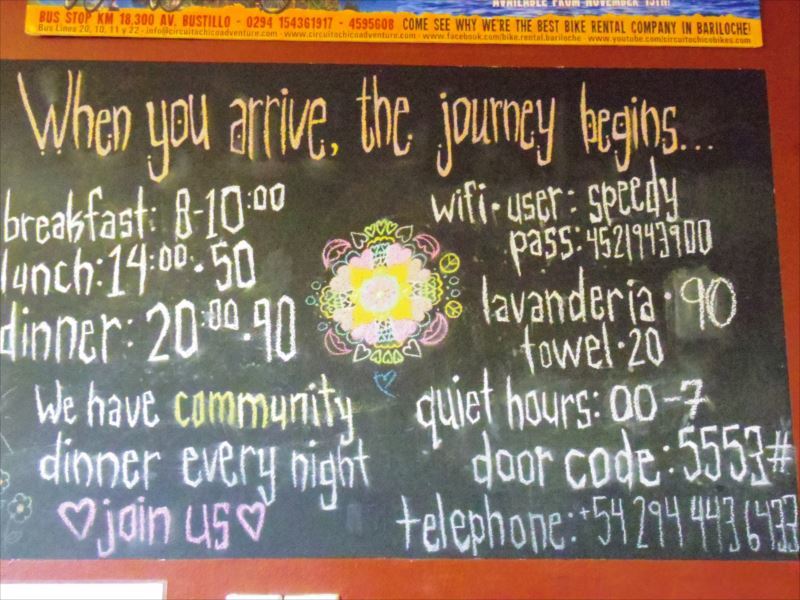 AVAILABLE FROM NOVEMBER 15TH!
BUS STOP KM 18.300 AV. BUSTILLO - 0294 154361917 - 4595608 COME SEE WHY WE'RE THE BEST BIKE RENTAL COMPANY IN BARILOCHE!
Bus Lines 20, 10, 11 y 22 - info@circuitochicoadventure.com - www.circuitochicoadventure.com - www.facebook.com/bike.rental.bariloche - www.youtube.com/circuitochicobikes.com
When you arrive, the journey begins...
breakfast: 8-10:00
lunch: 14:00 · 50
dinner: 20:00 · 90
We have community
dinner every night
♡ join us ♡
wifi · user: speedy
pass: 4521943900
lavanderia · 90
towel · 20
quiet hours: 00-7
door code: 5553#
telephone: +54 294 443 6433